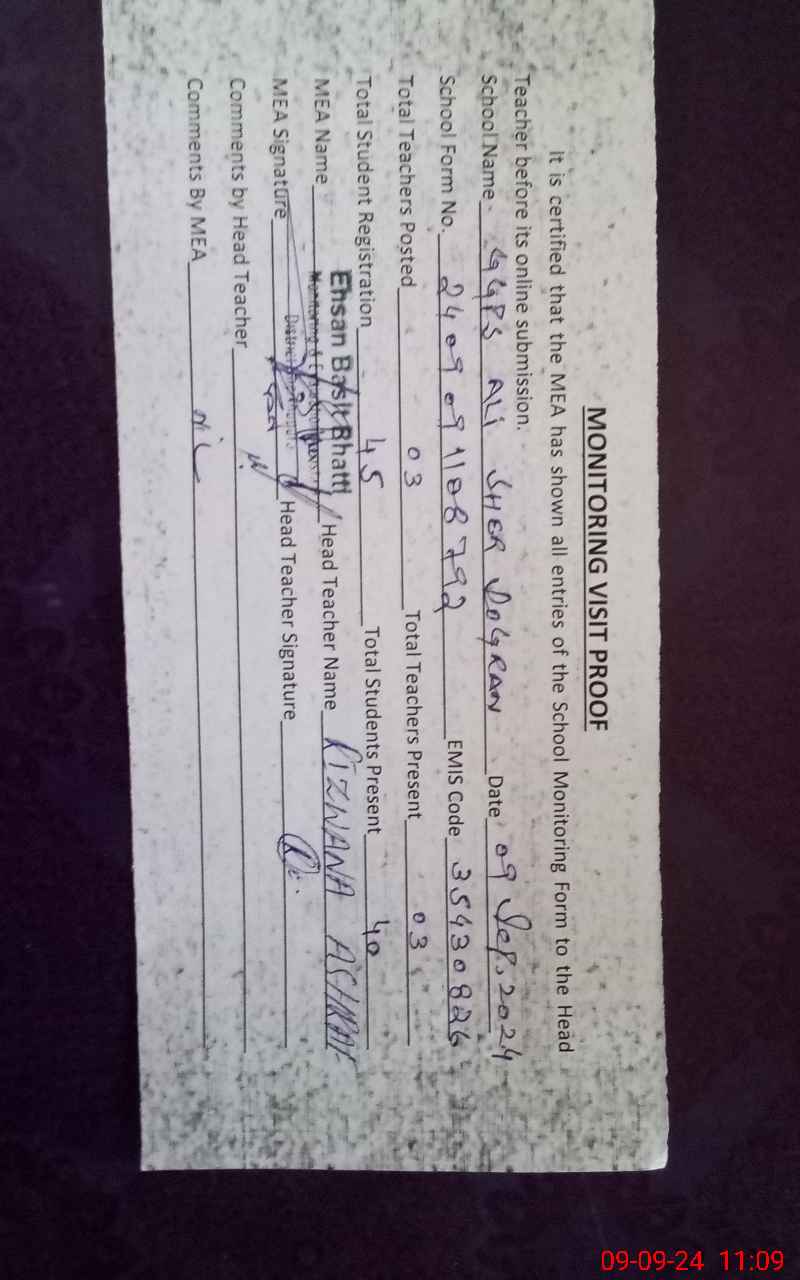 MONITORING VISIT PROOF
It is certified that the MEA has shown all entries of the School Monitoring Form to the Head
Teacher before its online submission.
School Name GGPS ALI SHER DOGRAN Date 09 Sep. 2024
School Form No. 2409091108792 EMIS Code 35430826
Total Teachers Posted 03 Total Teachers Present 03
Total Student Registration 45 Total Students Present 40
Ehsan Basit Bhatti
MEA Name Monitoring & Head Teacher Name RIZWANA ASHRAF
MEA Signature Head Teacher Signature
Comments by Head Teacher
Comments By MEA NiL
09-09-24 11:09